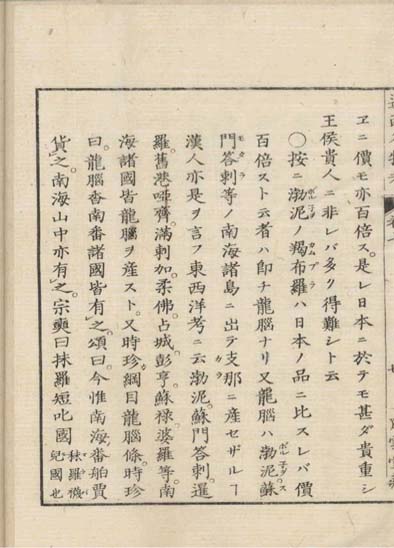 ヱニ價モ亦百倍ス。是レ日本ニ於テモ甚ダ貴重シ
王侯貴人ニ非レバ多ク得難シト云
○按ニ渤泥ノ羯布羅ハ日本ノ品ニ比スレバ價
百倍スト云者ハ卽チ龍腦ナリ又龍腦ハ渤泥蘇
門答剌等ノ南海諸島ニ出テ支那ニ産セザルヿ
漢人亦是ヲ言フ東西洋考ニ云渤泥。蘇門答剌。暹
羅。舊港。啞齊。滿剌加。柔佛。占城。彭亨。蘇祿。婆羅等。南
海諸國皆龍腦ヲ産スト。又時珍綱目龍腦條。時珍
曰。龍腦香南番諸國皆有之。頌曰。今惟南海番舶賈
貨之。南海山中亦有之。宗奭曰抹羅短叱國 秣羅矩吒國也